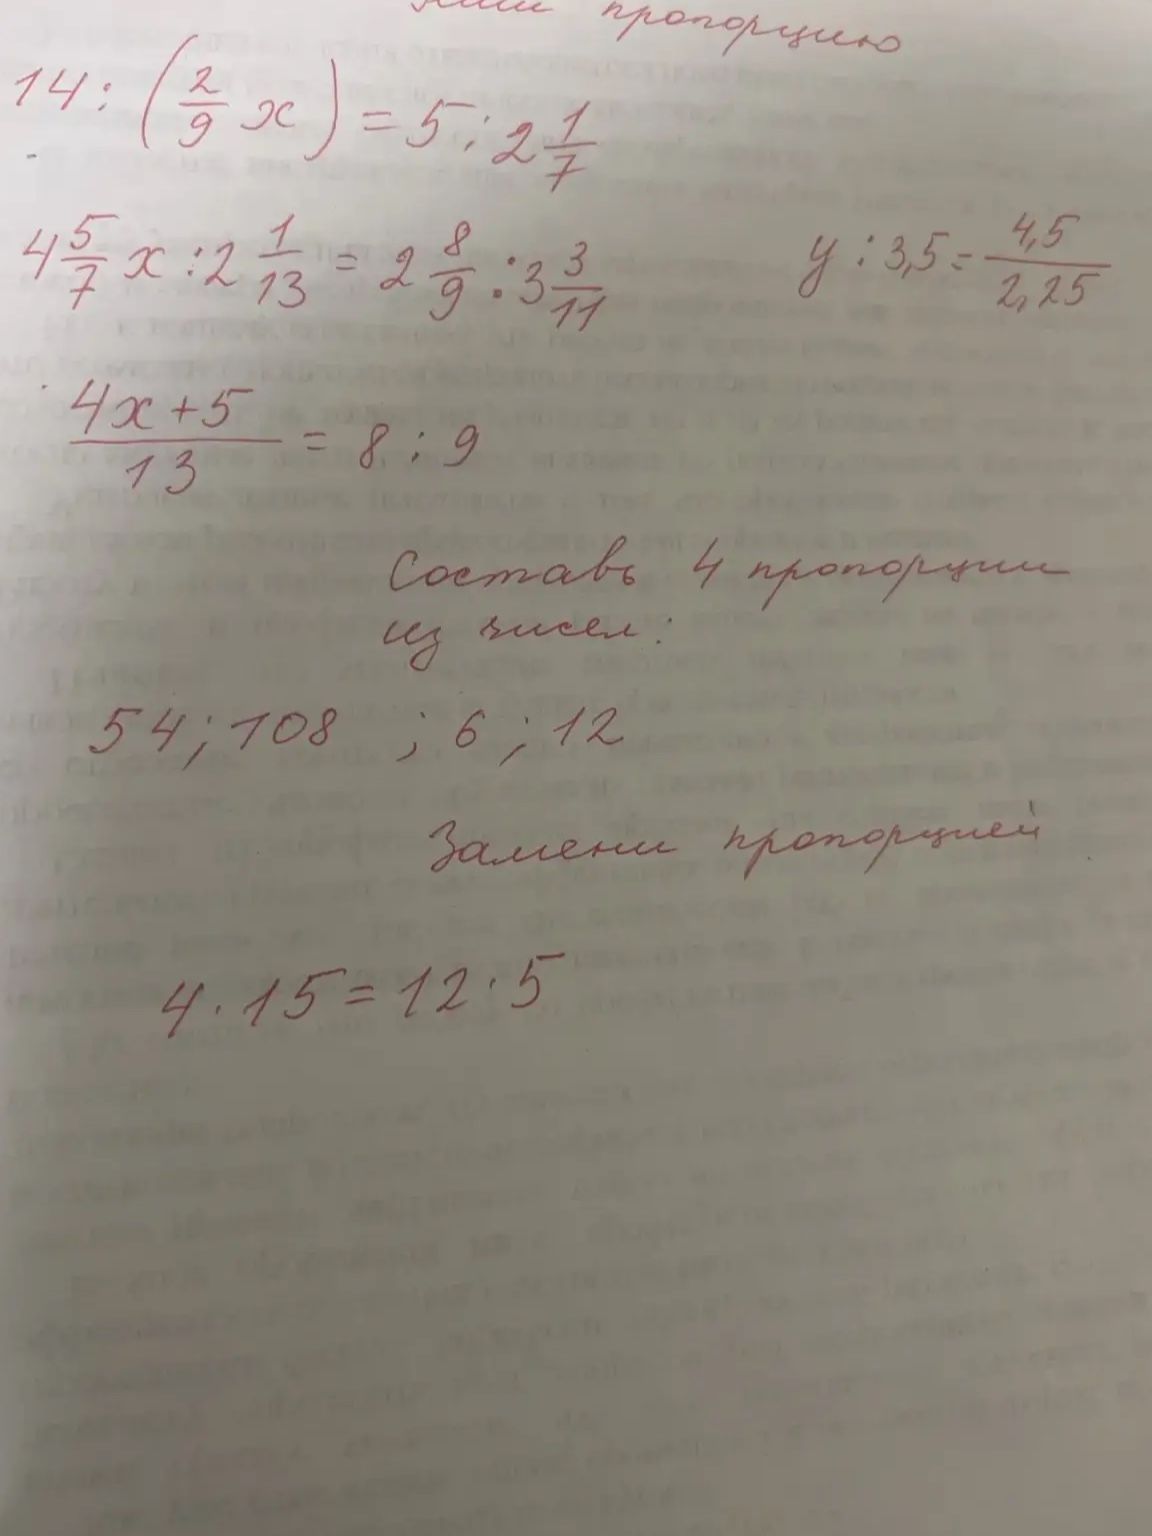 пропорцию
14 : (2/9 x) = 5 : 2 1/7
4 5/7 x : 2 1/13 = 2 8/9 : 3 3/11
y : 3,5 = 4,5/2,25
4x+5/13 = 8 : 9
Составь 4 пропорции
из чисел:
54 ; 108 ; 6 ; 12
Замени пропорцией
4 · 15 = 12 · 5